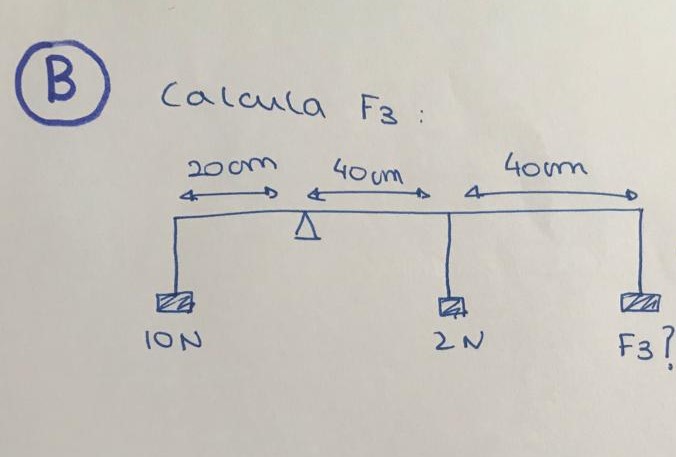 B
Calcula F3:
20cm 40cm 40cm
10N 2N F3?